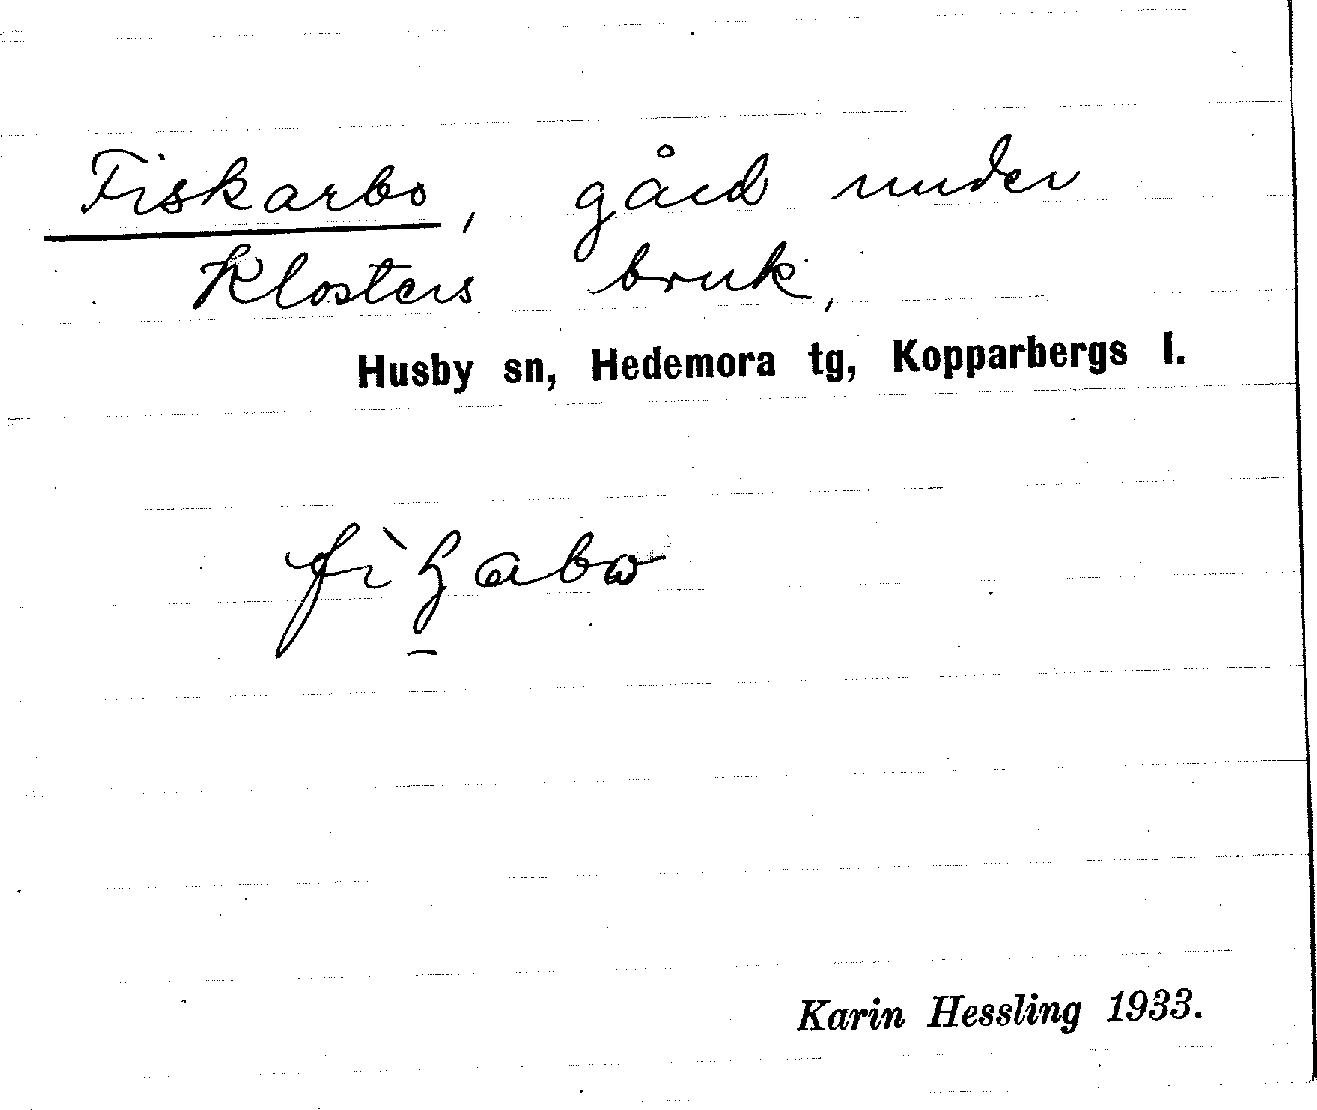 Fiskarbo, gård under
Klosters bruk,
Husby sn, Hedemora tg, Kopparbergs l.
Karin Hessling 1933.